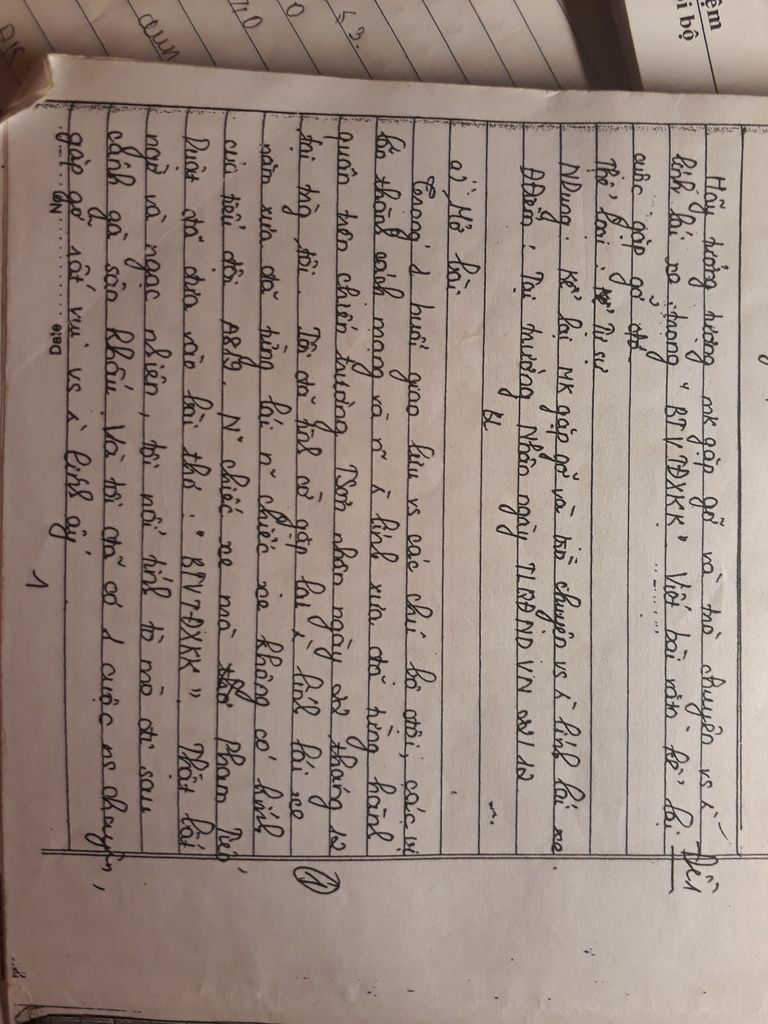 Hãy tưởng tượng mk gặp gỡ và trò chuyện vs
lính lái xe trong "BTVTĐXKK" Viết bài văn kể lại
Đề 1
cuộc gặp gỡ đó
Thể loại: Tự sự
NDung: Kể lại MK gặp gỡ và trò chuyện vs lính lái xe
ĐĐiểm: Tại trường Nhân ngày TLQĐNDVN 22/12
BL
a) Mở bài
Trong 1 buổi giao lưu vs các chú bộ đội, các vị
lão thành cách mạng và lính xưa đã từng hành
quân trên chiến trường TSơn nhân ngày 22 tháng 12
tại trg tôi. Tôi đã tình cờ gặp lại lính lái xe
năm xưa đã từng lái chiếc xe không có kính
của tiểu đội chiếc xe mà Phạm Tiến
Duật đã đưa vào bài thơ: "BTVTĐXKK" Thật bất
ngờ và ngạc nhiên, tôi nổi tính tò mò đi sau
cánh gà sân khấu. Và tôi đã có 1 cuộc ns chuyện,
gặp gỡ rất vui vs lính ấy
1
1
No
Date
ệm
i bộ
53.